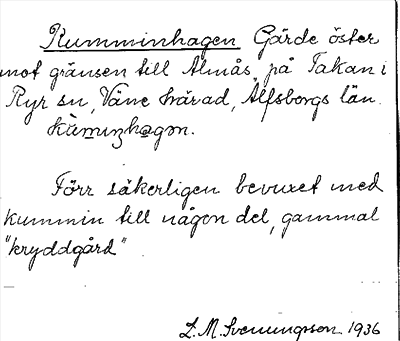 Kumminhagen Gärde öster
mot gränsen till Almås, på Takan i
Ryr sn, Väne härad, Älfsborgs län.
kùminhagən.
Förr säkerligen bevuxet med
kummin till någon del, gammal
"kryddgård"
L. M. Svenungsson 1936